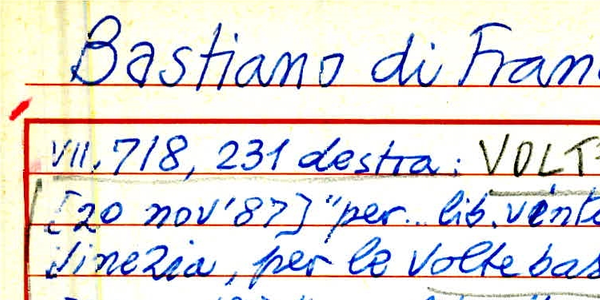 Bastiano di Fran
VII.718, 231 destra: VOLT
[20 nov '87] "per... lib. vinti
Vinezia, per le Volte bas